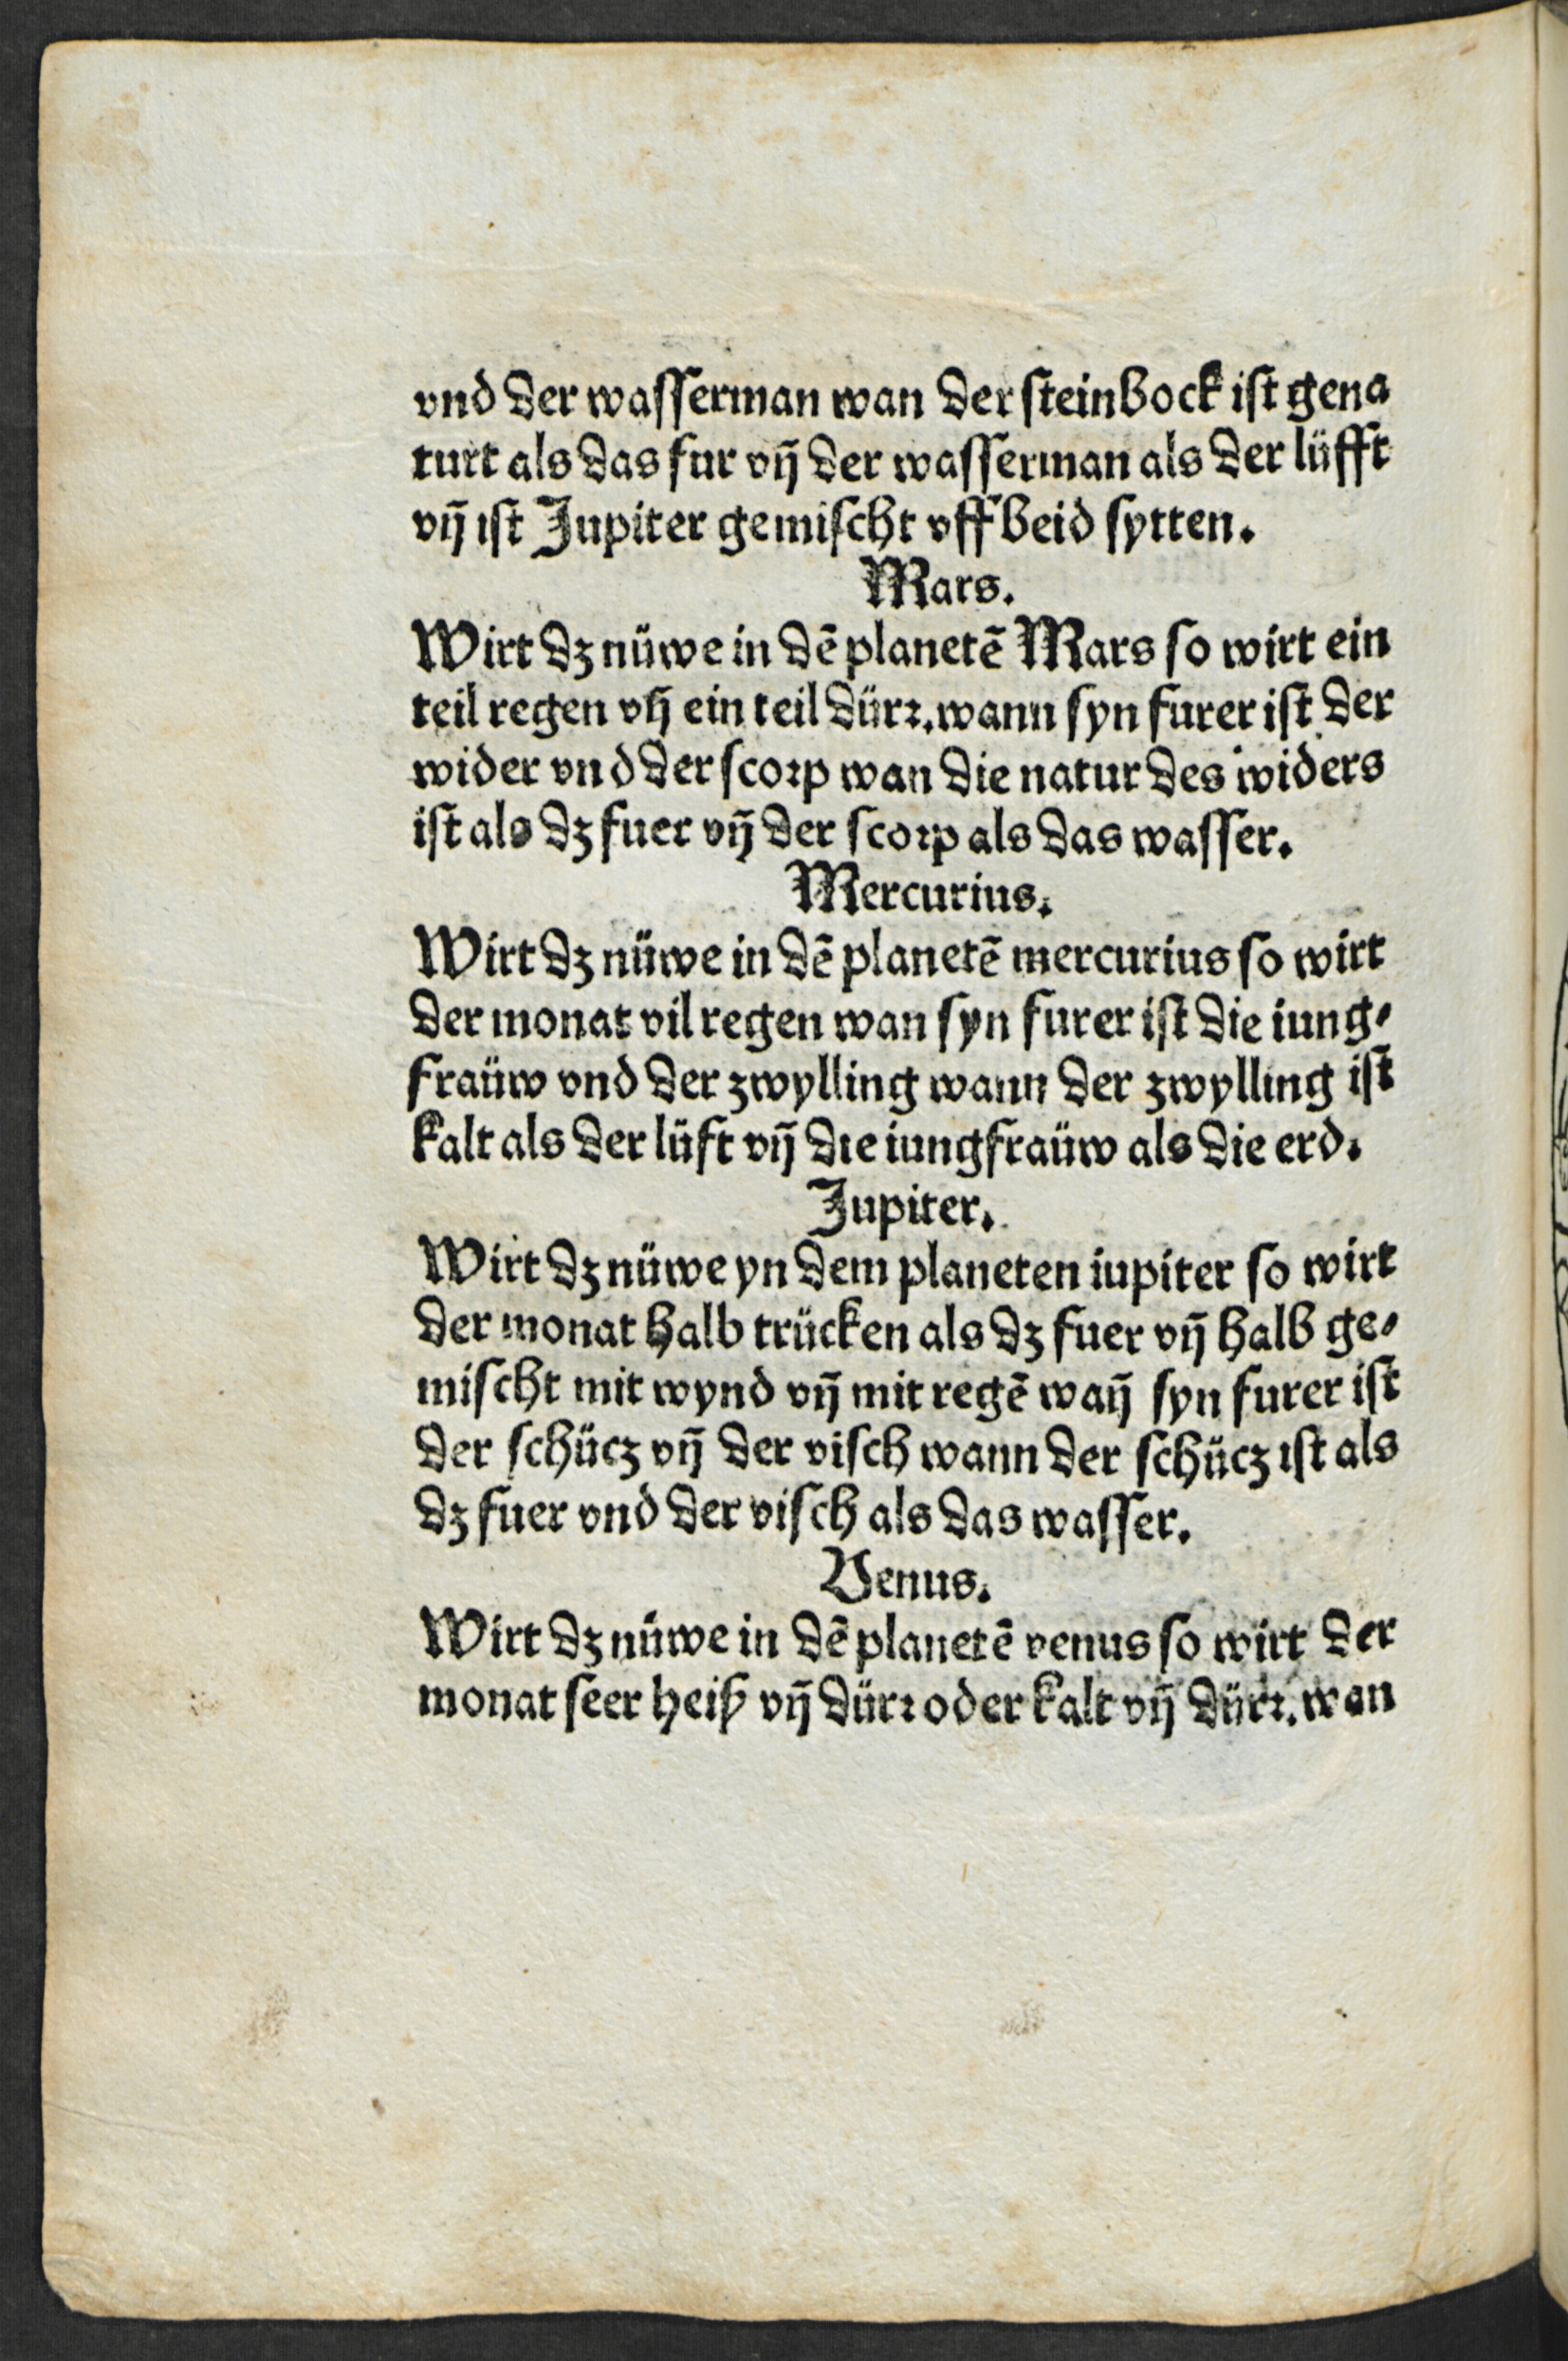 vnd der waſſerman wan der ſteinbock iſt gena
turt als das fur vñ der waſſerman als der lüfft
vñ iſt Jupiter gemiſcht vff beid ſytten.
Mars.
Wirt dz nüwe in dē planetē Mars ſo wirt ein
teil regen vñ ein teil dürꝛ. wann ſyn furer iſt der
wider vnd der ſcoꝛp wan die natur des widers
iſt als dz fuer vñ der ſcoꝛp als das waſſer.
Mercurius.
Wirt dz nüwe in dē planetē mercurius ſo wirt
der monat vil regen wan ſyn furer iſt die iung⸗
fraüw vnd der zwylling wann der zwylling iſt
kalt als der lüft vñ die iungfraüw als die erd.
Jupiter.
Wirt dz nüwe yn dem planeten iupiter ſo wirt
der monat halb trücken als dz fuer vñ halb ge⸗
miſcht mit wynd vñ mit regē wañ ſyn furer iſt
der ſchücz vñ der viſch wann der ſchücz iſt als
dz fuer vnd der viſch als das waſſer.
Venus.
Wirt dz nüwe in dē planetē venus ſo wirt der
monat ſeer heiß vñ dürꝛ oder kalt vñ dürꝛ. wan